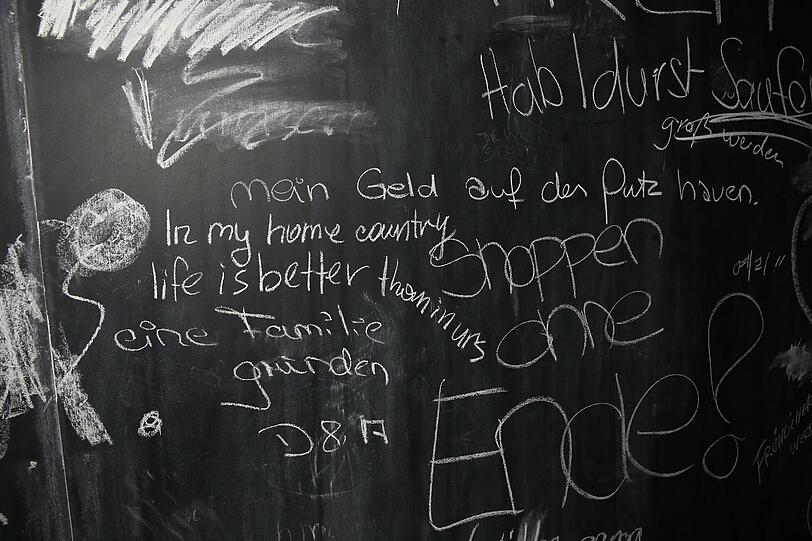 Hab I durst Saufa
groß werden
mein Geld auf den Putz hauen.
In my home country
life is better than in urs
Shoppen
ohne
Ende!
eine Familie
gründen
D & A